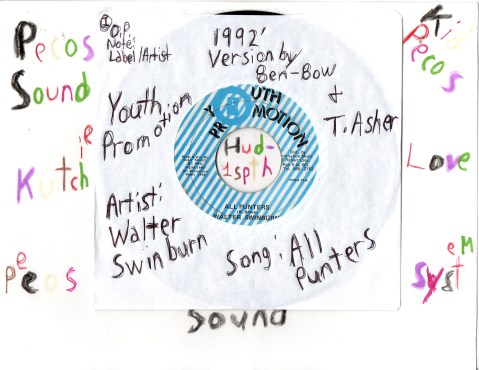 Pecos
Sound
Kutchie
Peecos
O.P
Note:
Label/Artist
1992'
Version by
Ben-Bow
+
T. Asher
Youth
Promotion
YOUTH
PROMOTION
Hud-
1spth
ALL PUNTERS
WALTER SWINBURN
Artist:
Walter
Swinburn
Song: All
Punters
Pecos
Love
System
Sound